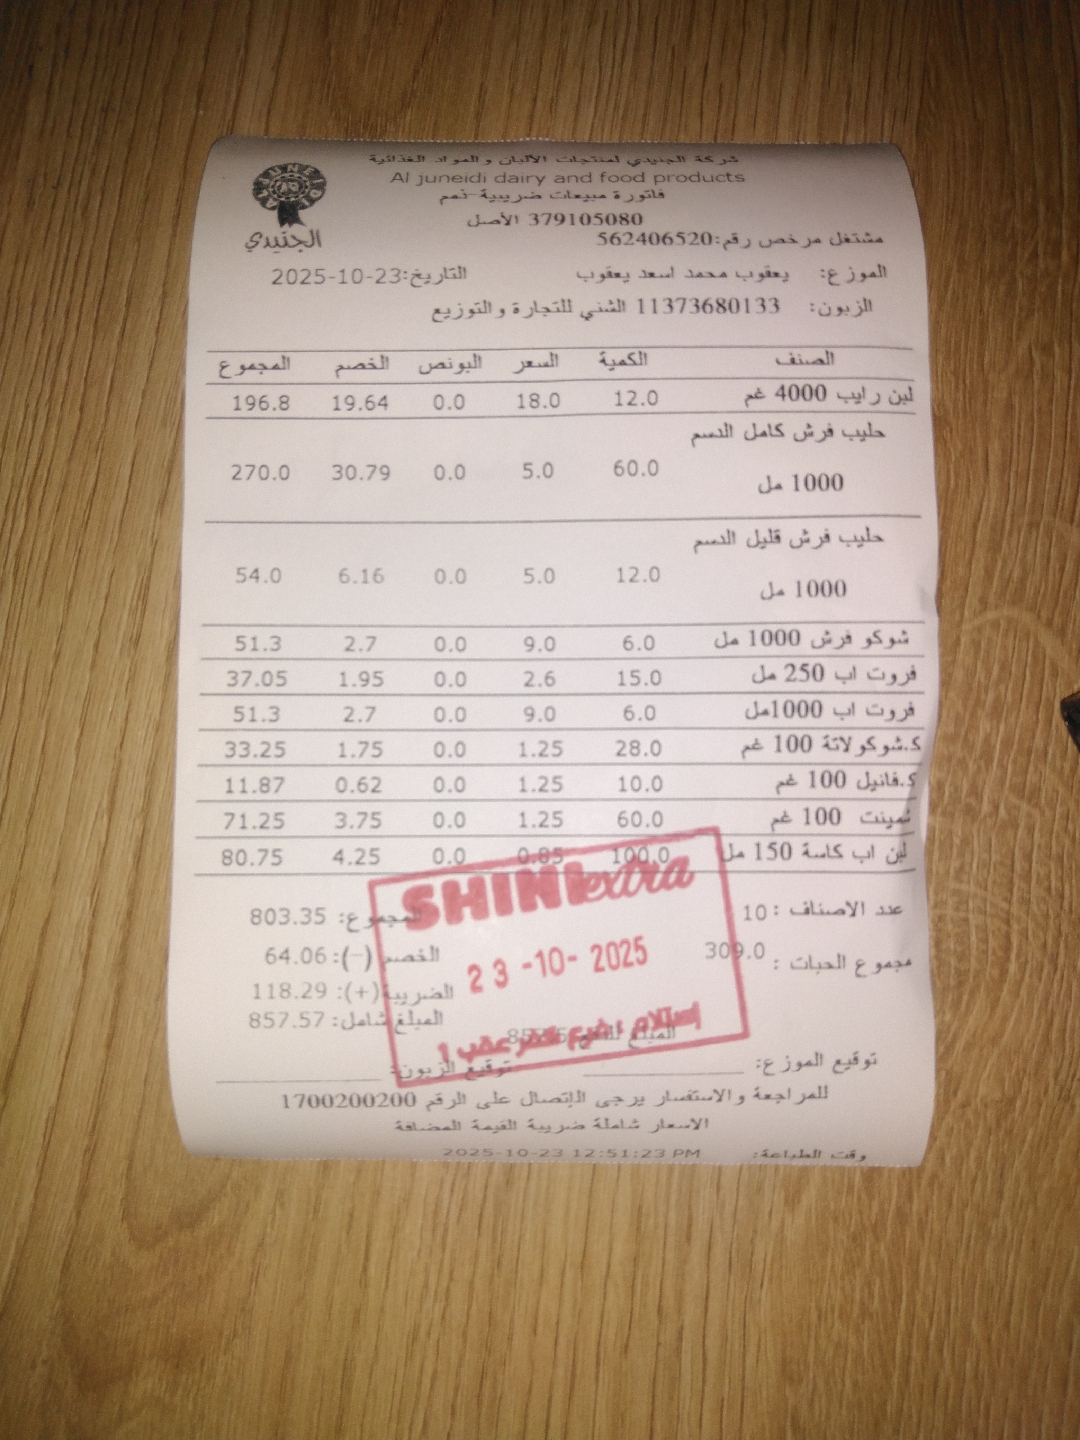 شركة الجنيدي لمنتجات الألبان و المواد الغذائية
Al juneidi dairy and food products
فاتورة مبيعات ضريبية-ذمم
379105080 الأصل
AL JUNEIDI
الجنيدي
مشتغل مرخص رقم:562406520
الموزع: يعقوب محمد اسعد يعقوب التاريخ:2025-10-23
الزبون: 11373680133 الشني للتجارة والتوزيع
الصنف الكمية السعر البونص الخصم المجموع
لبن رايب 4000 غم 12.0 18.0 0.0 19.64 196.8
حليب فرش كامل الدسم
1000 مل 60.0 5.0 0.0 30.79 270.0
حليب فرش قليل الدسم
1000 مل 12.0 5.0 0.0 6.16 54.0
شوكو فرش 1000 مل 6.0 9.0 0.0 2.7 51.3
فروت اب 250 مل 15.0 2.6 0.0 1.95 37.05
فروت اب 1000مل 6.0 9.0 0.0 2.7 51.3
ك.شوكولاتة 100 غم 28.0 1.25 0.0 1.75 33.25
ك.فانيل 100 غم 10.0 1.25 0.0 0.62 11.87
ثمينت 100 غم 60.0 1.25 0.0 3.75 71.25
لبن اب كاسة 150 مل 100.0 0.85 0.0 4.25 80.75
عدد الاصناف : 10 المجموع: 803.35
مجموع الحبات : 309.0 الخصم (-): 64.06
الضريبة(+): 118.29
المبلغ شامل: 857.57
SHINI extra
23 -10- 2025
إستلام فرع كفر عقب 1
المبلغ للدفع
توقيع الموزع: توقيع الزبون:
للمراجعة والاستفسار يرجى الإتصال على الرقم 1700200200
الاسعار شاملة ضريبة القيمة المضافة
وقت الطباعة: 2025-10-23 12:51:23 PM